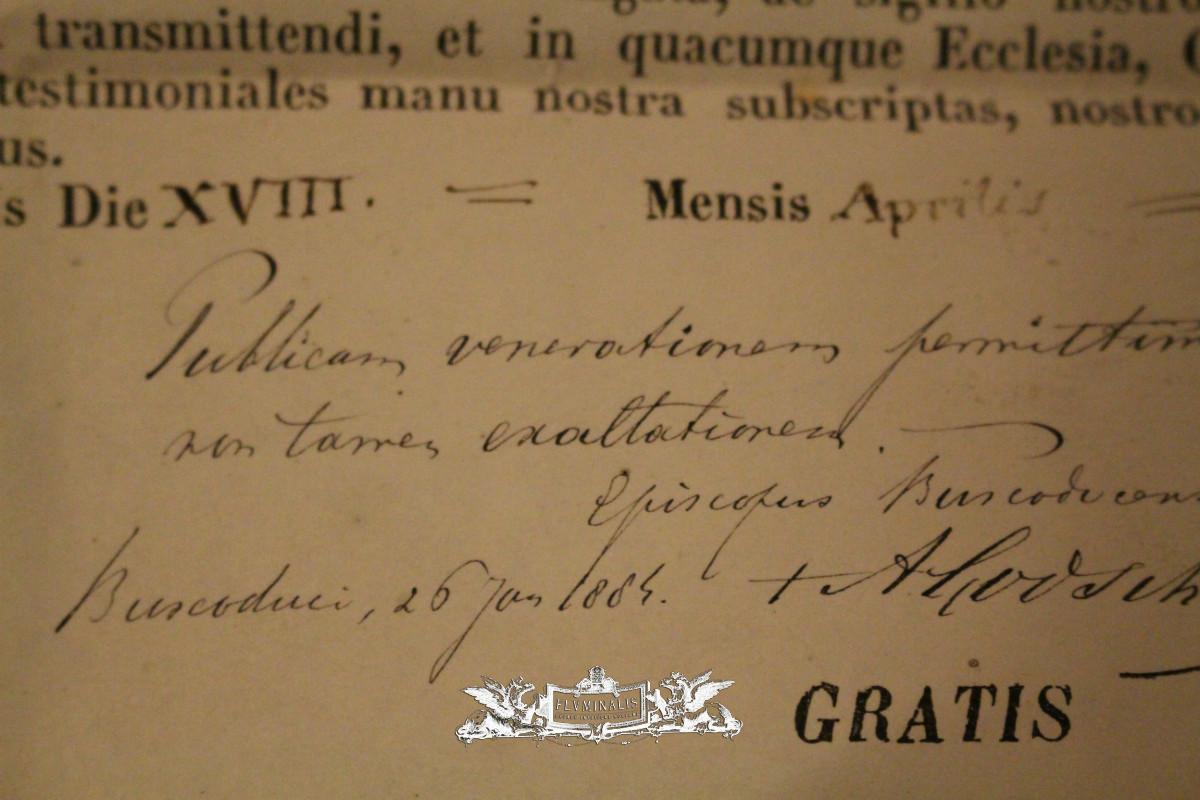 de sigillo nostro
transmittendi, et in quacumque Ecclesia,
testimoniales manu nostra subscriptas, nostro
us.
s Die XVIII. = Mensis Aprilis =
Publicam venerationem permittim
non tamen exaltationem.
Episcopus Buscoducens
Buscoduci, 26 Jan 1884. + A Godsch
FLVMINALIS
GRATIS